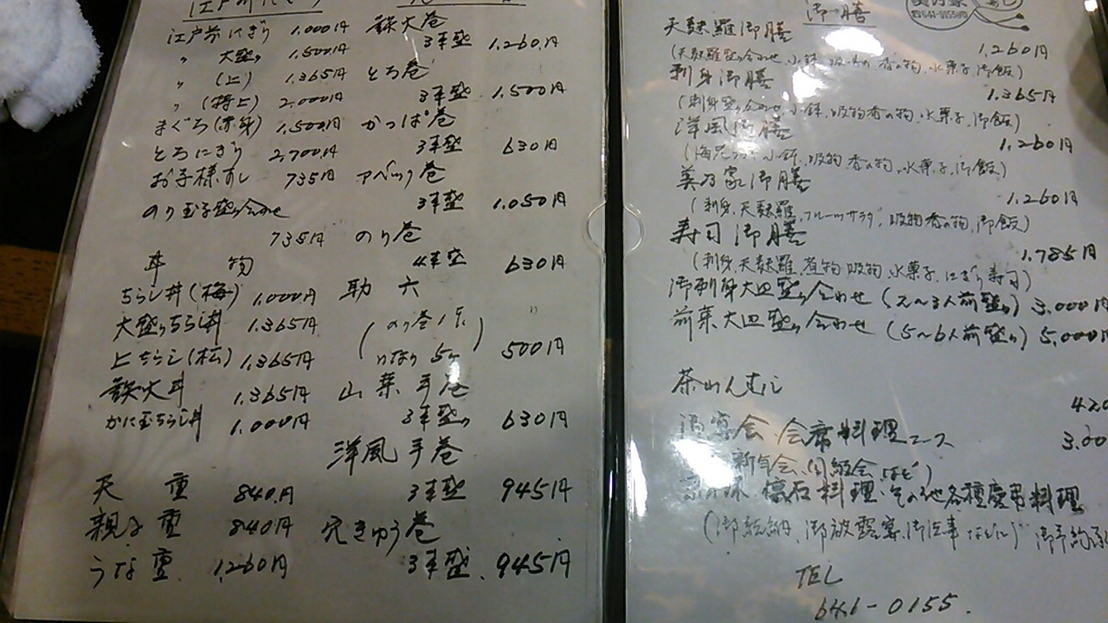 江戸前にぎり
江戸前にぎり 1,000円
〃 大盛り 1,500円
〃 (上) 1,365円
〃 (特上) 2,000円
まぐろ(赤身) 1,500円
とろにぎり 2,700円
お子様すし 735円
のり玉子盛り合わせ
735円
丼物
ちらし丼(梅) 1,000円
大盛りちらし丼 1,365円
上ちらし(松) 1,365円
鉄火丼 1,365円
かに玉ちらし丼 1,000円
天重 840円
親子重 840円
うな重 1,260円
鉄火巻
3本盛 1,260円
とろ巻
3本盛 1,500円
かっぱ巻
3本盛 630円
アベック巻
3本盛 1,050円
のり巻
4本盛 630円
助六
(のり巻1本
いなり5ヶ) 500円
山菜手巻
3本盛り 630円
洋風手巻
3本盛 945円
穴きゅう巻
3本盛 945円
御膳
天麩羅御膳
1,260円
(天麩羅盛り合わせ、小鉢、吸物、香の物、水菓子、御飯)
刺身御膳
1,365円
(刺身盛り合わせ、小鉢、吸物、香の物、水菓子、御飯)
洋風御膳
1,260円
(海老 小鉢、吸物、香の物、水菓子、御飯)
美乃家御膳
1,260円
(刺身、天麩羅、フルーツサラダ、吸物、香の物、御飯)
寿司御膳
1,785円
(刺身、天麩羅、煮物、吸物、水菓子、にぎり寿司)
御刺身大皿盛り合わせ(2〜3人前盛り) 3,000円
前菜大皿盛り合わせ(5〜6人前盛り) 5,000円
茶わんむし
420
宴会 会席料理コース 3,00
新年会、同級会など)
懐石料理、その他各種慶弔料理
(御結納、御披露宴、御法事などに) 御予約
TEL
641-0155.